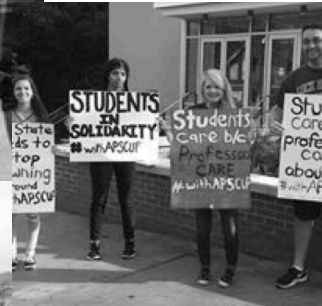 State
ds to
top
wning
round
thAPSCUF
STUDENTS
IN
SOLIDARITY
# withAPSCUF
Students
care b/c
Professors
CARE
# withAPSCUF
Stu
care
profe
ca
abou
#withAP